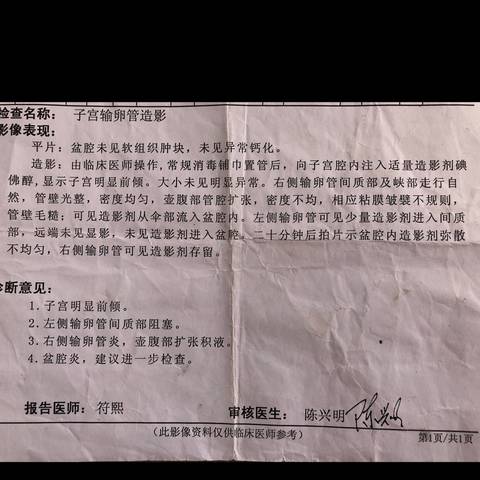 检查名称： 子宫输卵管造影
影像表现：
平片：盆腔未见软组织肿块，未见异常钙化。
造影：由临床医师操作,常规消毒铺巾置管后，向子宫腔内注入适量造影剂碘
佛醇,显示子宫明显前倾。大小未见明显异常。右侧输卵管间质部及峡部走行自
然，管壁光整，密度均匀，壶腹部管腔扩张，密度不均，相应粘膜皱襞不规则，
管壁毛糙；可见造影剂从伞部流入盆腔内。左侧输卵管可见少量造影剂进入间质
部，远端未见显影，未见造影剂进入盆腔。二十分钟后拍片示盆腔内造影剂弥散
不均匀，右侧输卵管可见造影剂存留。
诊断意见：
1.子宫明显前倾。
2.左侧输卵管间质部阻塞。
3.右侧输卵管炎，壶腹部扩张积液。
4.盆腔炎，建议进一步检查。
报告医师： 符熙 审核医生： 陈兴明 陈兴明
（此影像资料仅供临床医师参考） 第1页/共1页